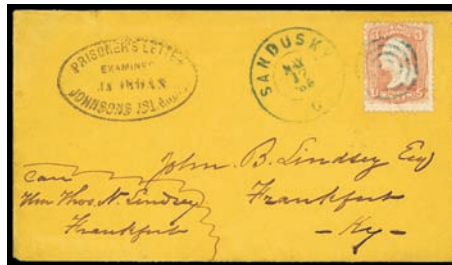 PRISONER'S LETTER
EXAMINED
SANDUSKY
MAY
17
O
3 3
John B. Lindsey Esq
Frankfort
- Ky -
Care
Hon Thos. N. Lindsey
Frankfort